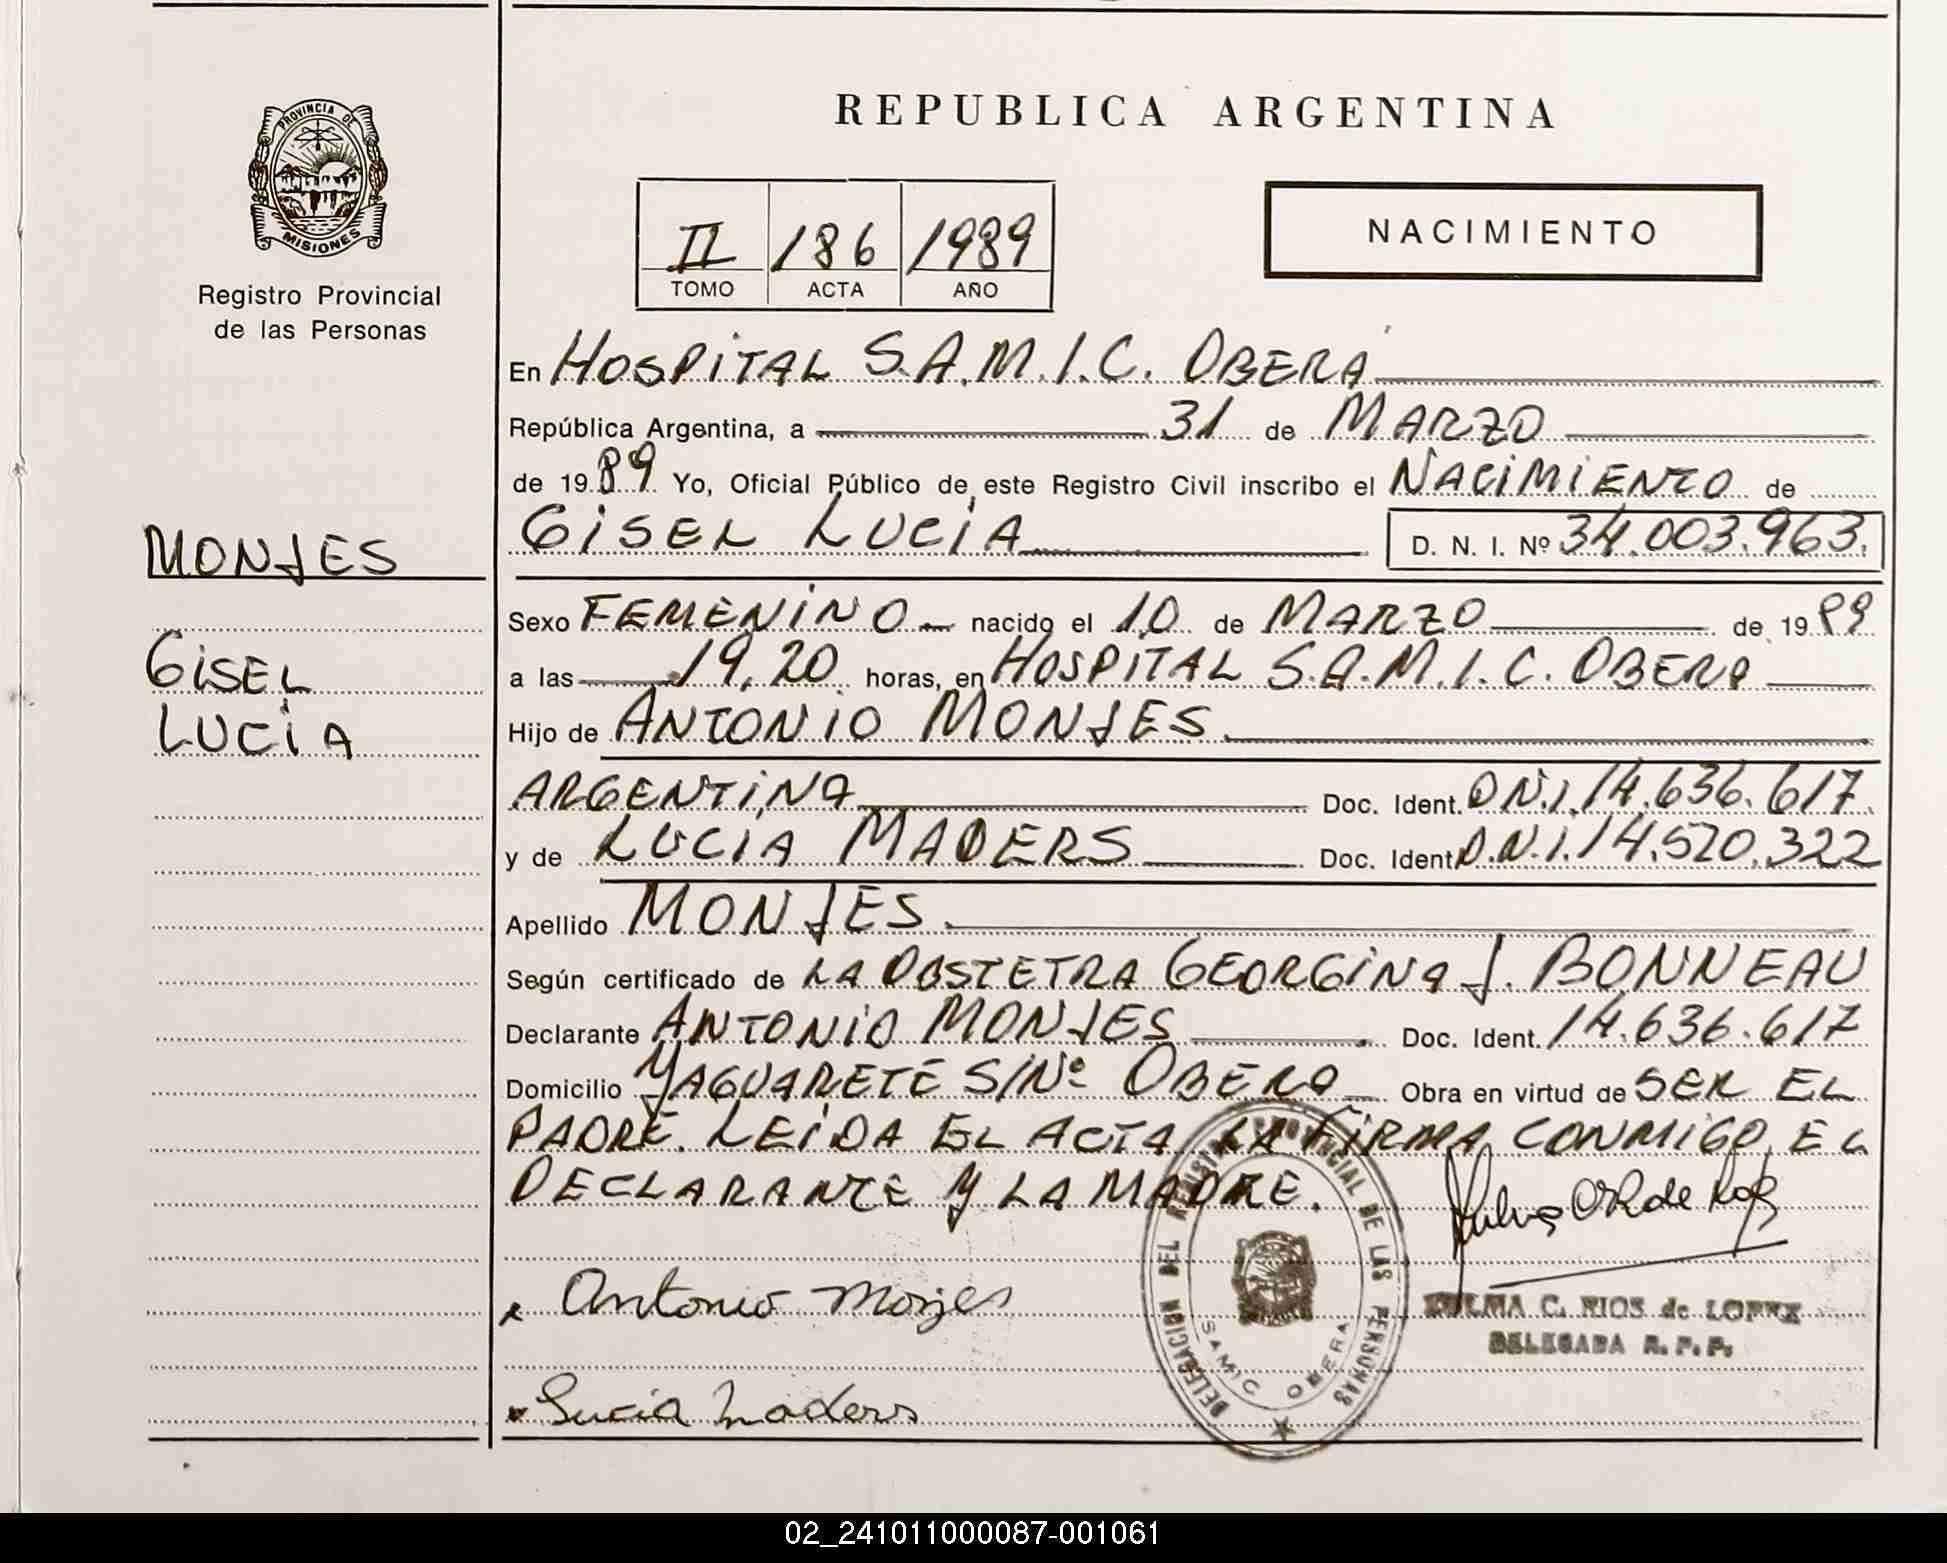 PROVINCIA DE
MISIONES
Registro Provincial
de las Personas
MONJES
GISEL
LUCIA
REPUBLICA ARGENTINA
II 186 1989
TOMO ACTA AÑO
NACIMIENTO
En HOSPITAL S.A.M.I.C. OBERA
República Argentina, a 31 de MARZO
de 1989 Yo, Oficial Público de este Registro Civil inscribo el NACIMIENTO de
GISEL LUCIA D. N. I. Nº 34.003.963.
Sexo FEMENINO nacido el 10 de MARZO de 1989
a las 19,20 horas, en HOSPITAL S.A.M.I.C. OBERA
Hijo de ANTONIO MONJES
ARGENTINA Doc. Ident. D.N.I. 14.636.617
y de LUCIA MADERS Doc. Ident. D.N.I. 14.520.322
Apellido MONJES
Según certificado de LA OBSTETRA GEORGINA J. BONNEAU
Declarante ANTONIO MONJES Doc. Ident. 14.636.617
Domicilio YAGUARETE S/Nº OBERA Obra en virtud de SER EL
PADRE. LEIDA EL ACTA LA FIRMA CONMIGO EL
DECLARANTE Y LA MADRE.
Antonio Monjes
Lucia Maders
DELEGACION DEL REGISTRO PROVINCIAL DE LAS PERSONAS
SAMIC OBERA
C. RIOS de LOPEZ
DELEGADA R. P. P.
02_241011000087-001061